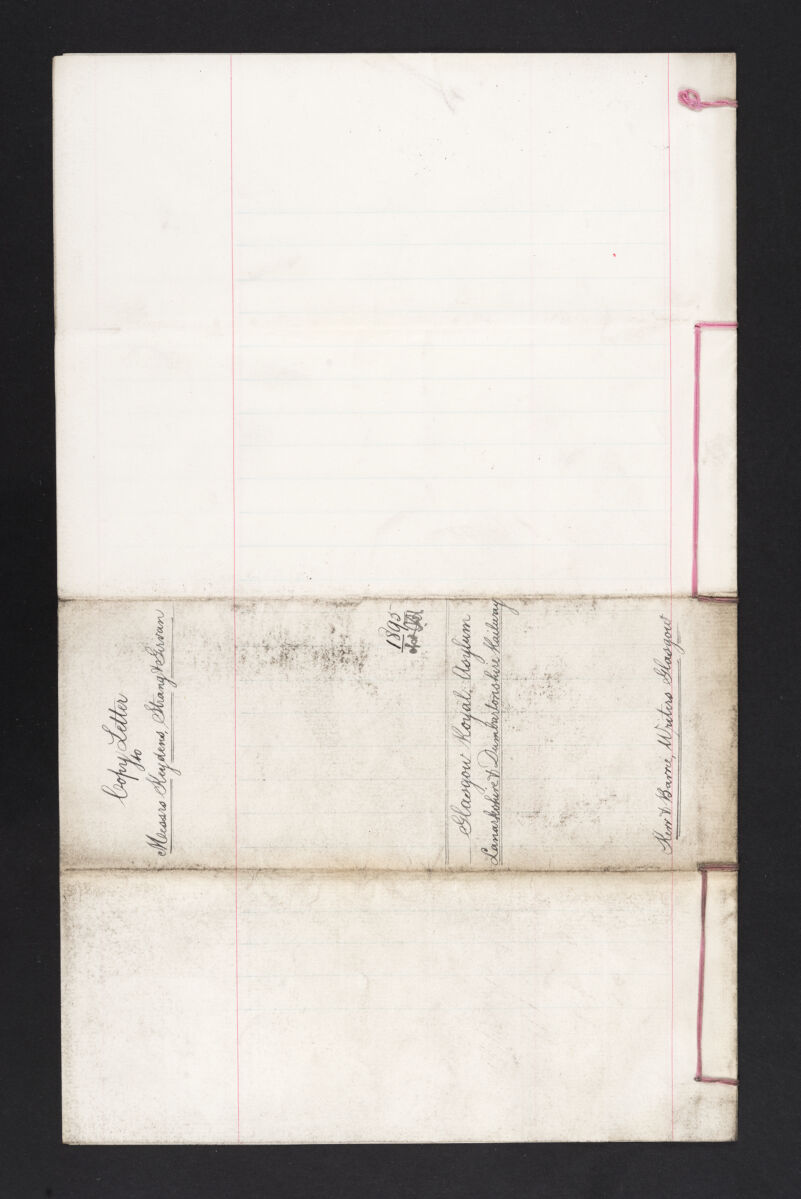 Copy Letter
to
Messrs Keydens, Strang & Girvan
1895
Glasgow Royal Asylum
Lanarkshire & Dumbartonshire Railway
Kerr & Barrie, Writers Glasgow